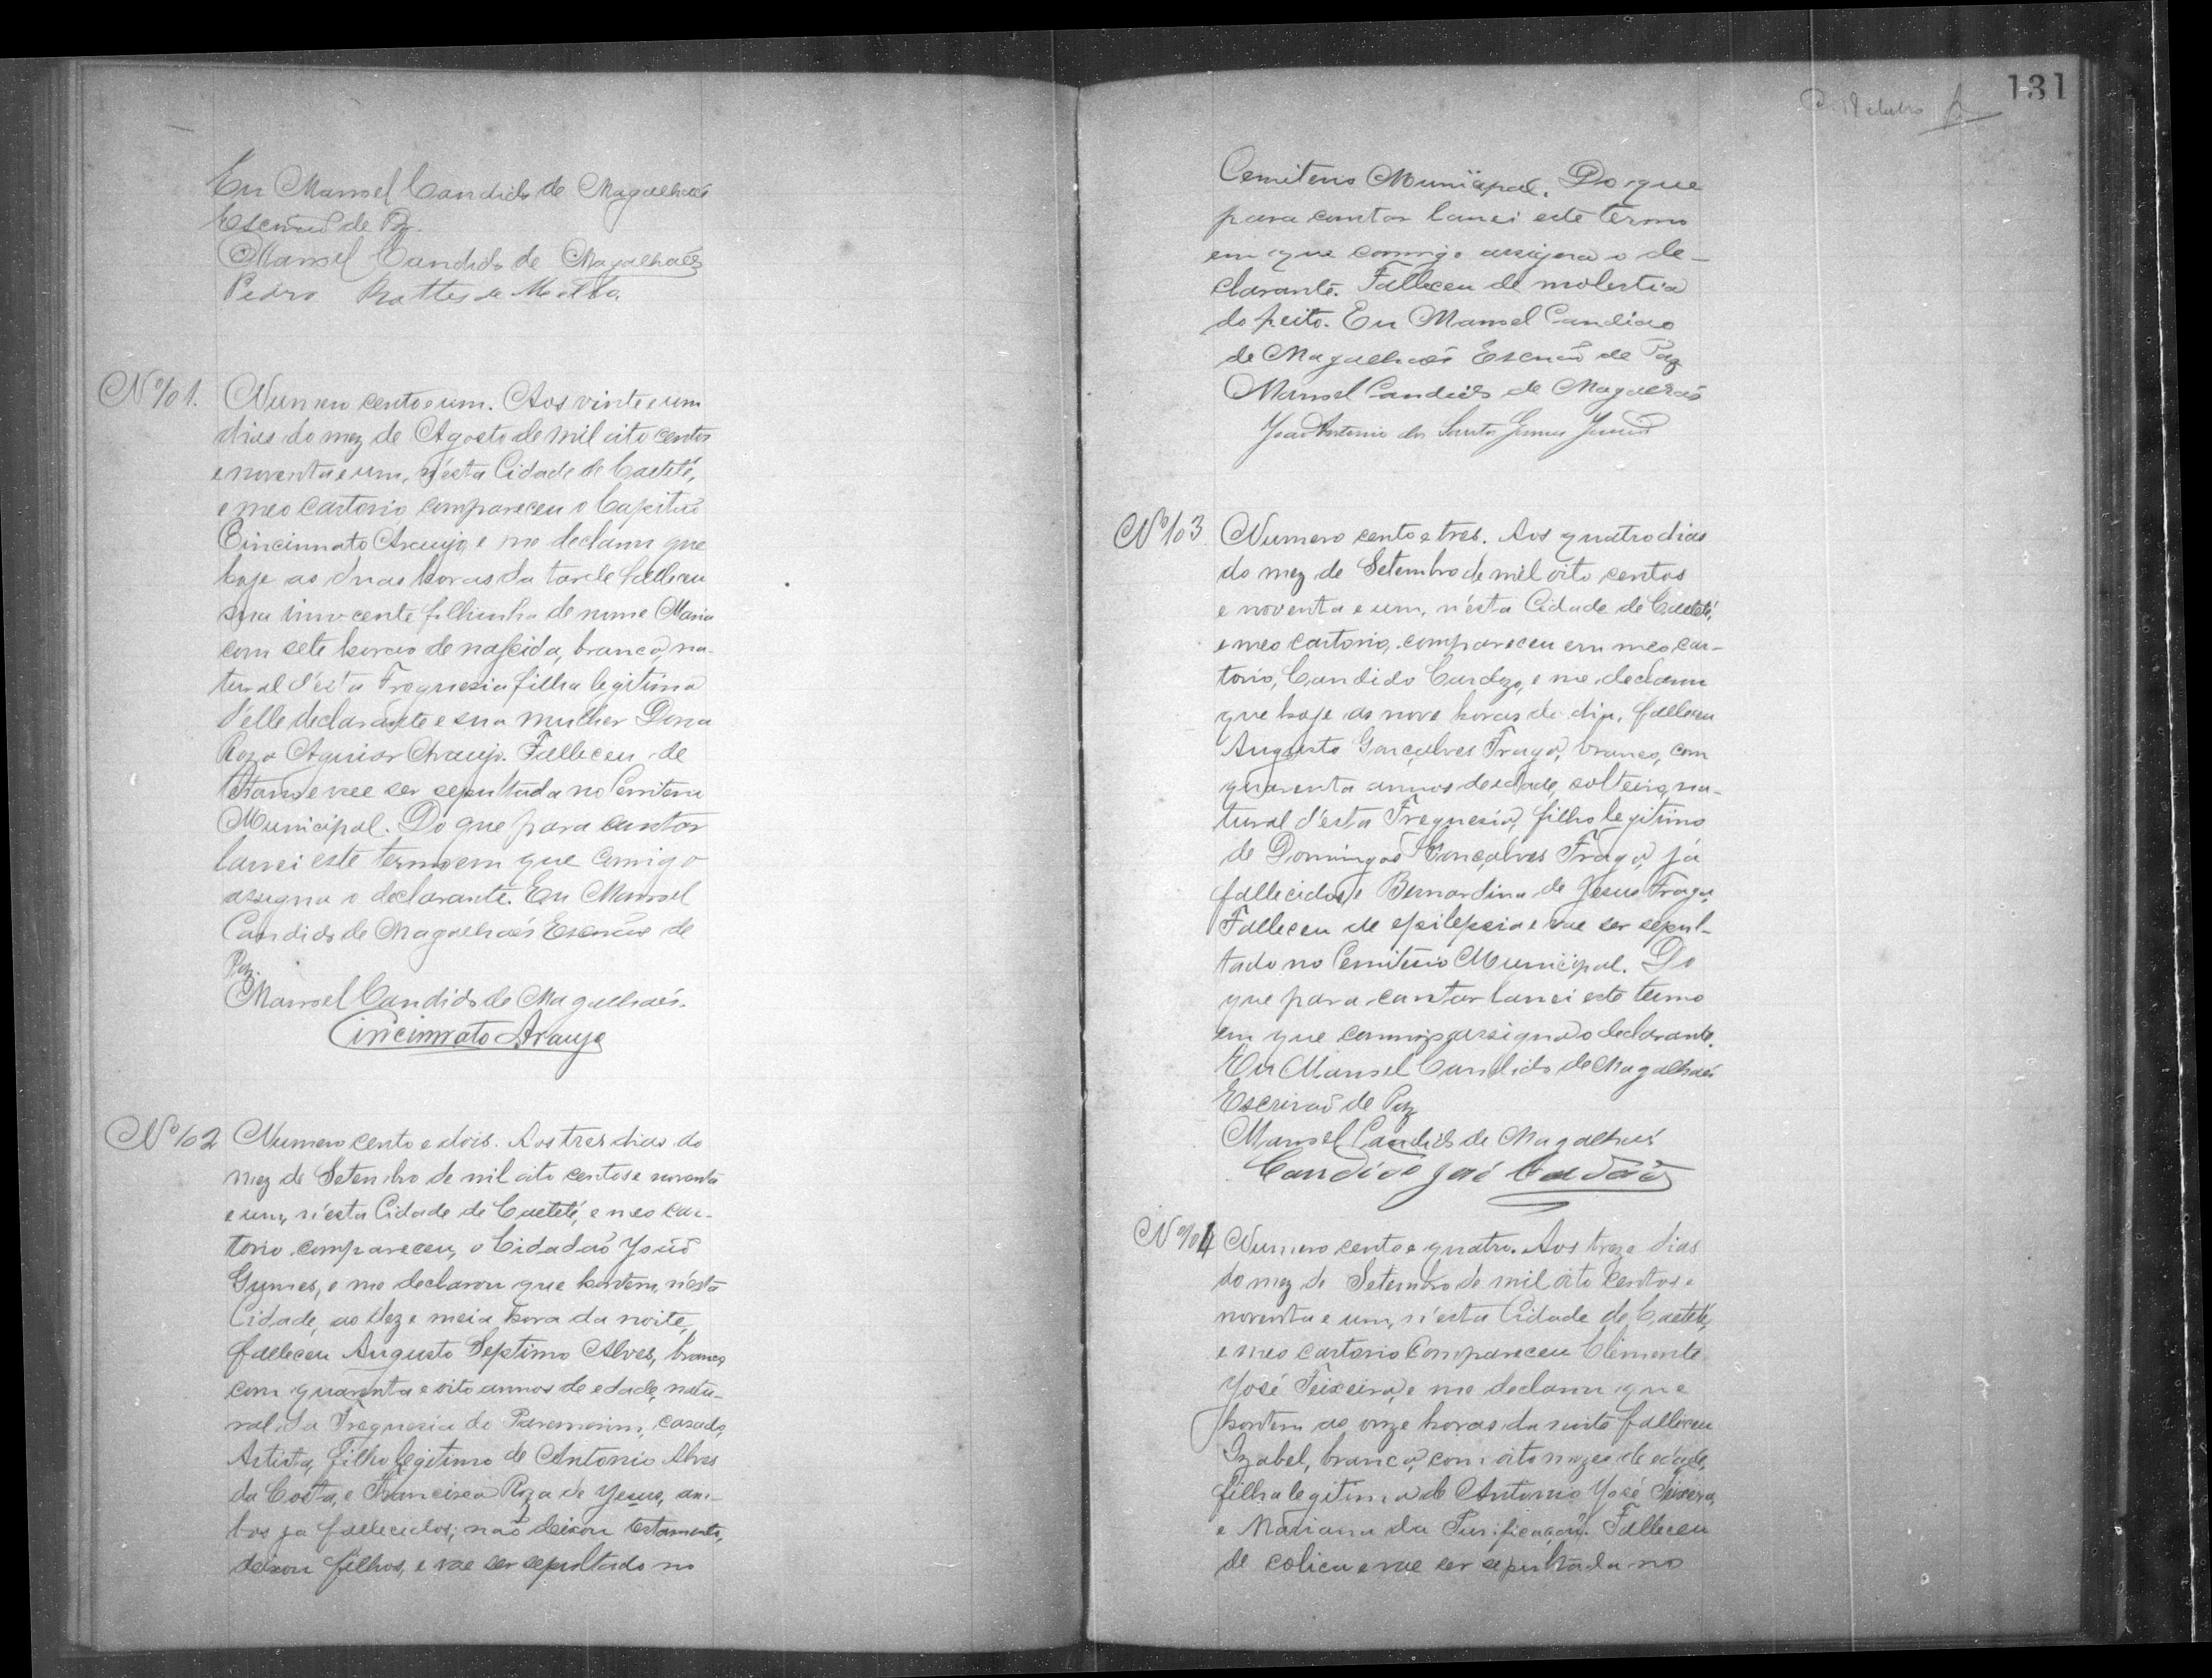 Eu Manoel Candido de Magalhães
Escrivão de Paz.
Manoel Candido de Magalhães
Pedro de Mattos
Nº 101. Numero cento e um. Aos vinte e um
dias do mez de Agosto de mil oito centos
e noventa e um, n'esta Cidade de Caeteté,
e meo cartorio compareceu o Capitão
Cincinnato Araujo, e me declarou que
hoje as duas horas da tarde falleceu
sua innocente filhinha de nome Maria
com sete horas de nascida, branca, na-
tural d'esta Freguesia filha legitima
d'elle declarante e sua mulher Dona
Roza Aguiar Araujo. Falleceu de
Tetano e vae ser sepultada no Cemiterio
Municipal. Do que para constar
lancei este termo em que comigo
assigna o declarante. Eu Manoel
Candido de Magalhães Escrivão de
Paz.
Manoel Candido de Magalhães.
Cincinnato Araujo
Nº 102 Numero cento e dois. Aos tres dias do
mez de Setembro de mil oito centos e noventa
e um, n'esta Cidade de Caeteté, e meo car-
torio compareceu, o Cidadão João
Gumes, e me declarou que hontem, n'esta
Cidade, as dez e meia hora da noite,
falleceu Augusto Septimo Alves, branco,
com quarenta e oito annos de edade, natu-
ral da Freguesia do Paramirim, casado,
Artista, filho legitimo de Antonio Alves
da Costa, e Francisca Roza de Jesus, am-
bos ja fallecidos; não deixou testamento,
deixou filhos, e vae ser sepultado no
131
Cemiterio Municipal. Do que
para constar lancei este termo
em que comigo assigna o de-
clarante. Falleceu de molestia
do peito. Eu Manoel Candido
de Magalhães Escrivão de Paz
Manoel Candido de Magalhães
João Antonio dos Santos Gumes Junior
Nº 103 Numero cento e tres. Aos quatro dias
do mez de Setembro de mil oito centos
e noventa e um, n'esta Cidade de Caeteté,
e meo cartorio, compareceu em meo car-
torio, Candido Cardozo, e me declarou
que hoje as nove horas do dia, falleceu
Augusto Gonçalves Fraga, branco, com
quarenta annos de edade, solteiro, na-
tural d'esta Freguesia, filho legitimo
de Domingos Gonçalves Fraga, já
fallecido, e Bernardina de Jesus Fraga,
Falleceu de epilepsia e vae ser sepul-
tado no Cemiterio Municipal. Do
que para constar lancei este termo
em que commigo assigna o declarante.
Eu Manoel Candido de Magalhães
Escrivão de Paz
Manoel Candido de Magalhães
Candido José
Nº 104 Numero cento e quatro. Aos treze dias
do mez de Setembro de mil oito centos e
noventa e um, n'esta Cidade de Caeteté,
e meo cartorio Compareceu Clemente
José Teixeira, e me declarou que
hontem as onze horas da noite falleceu
Izabel, branca, com oito mezes de edade,
filha legitima de Antonio José Teixeira,
e Mariana da Purificação. Falleceu
de colica e vae ser sepultada no